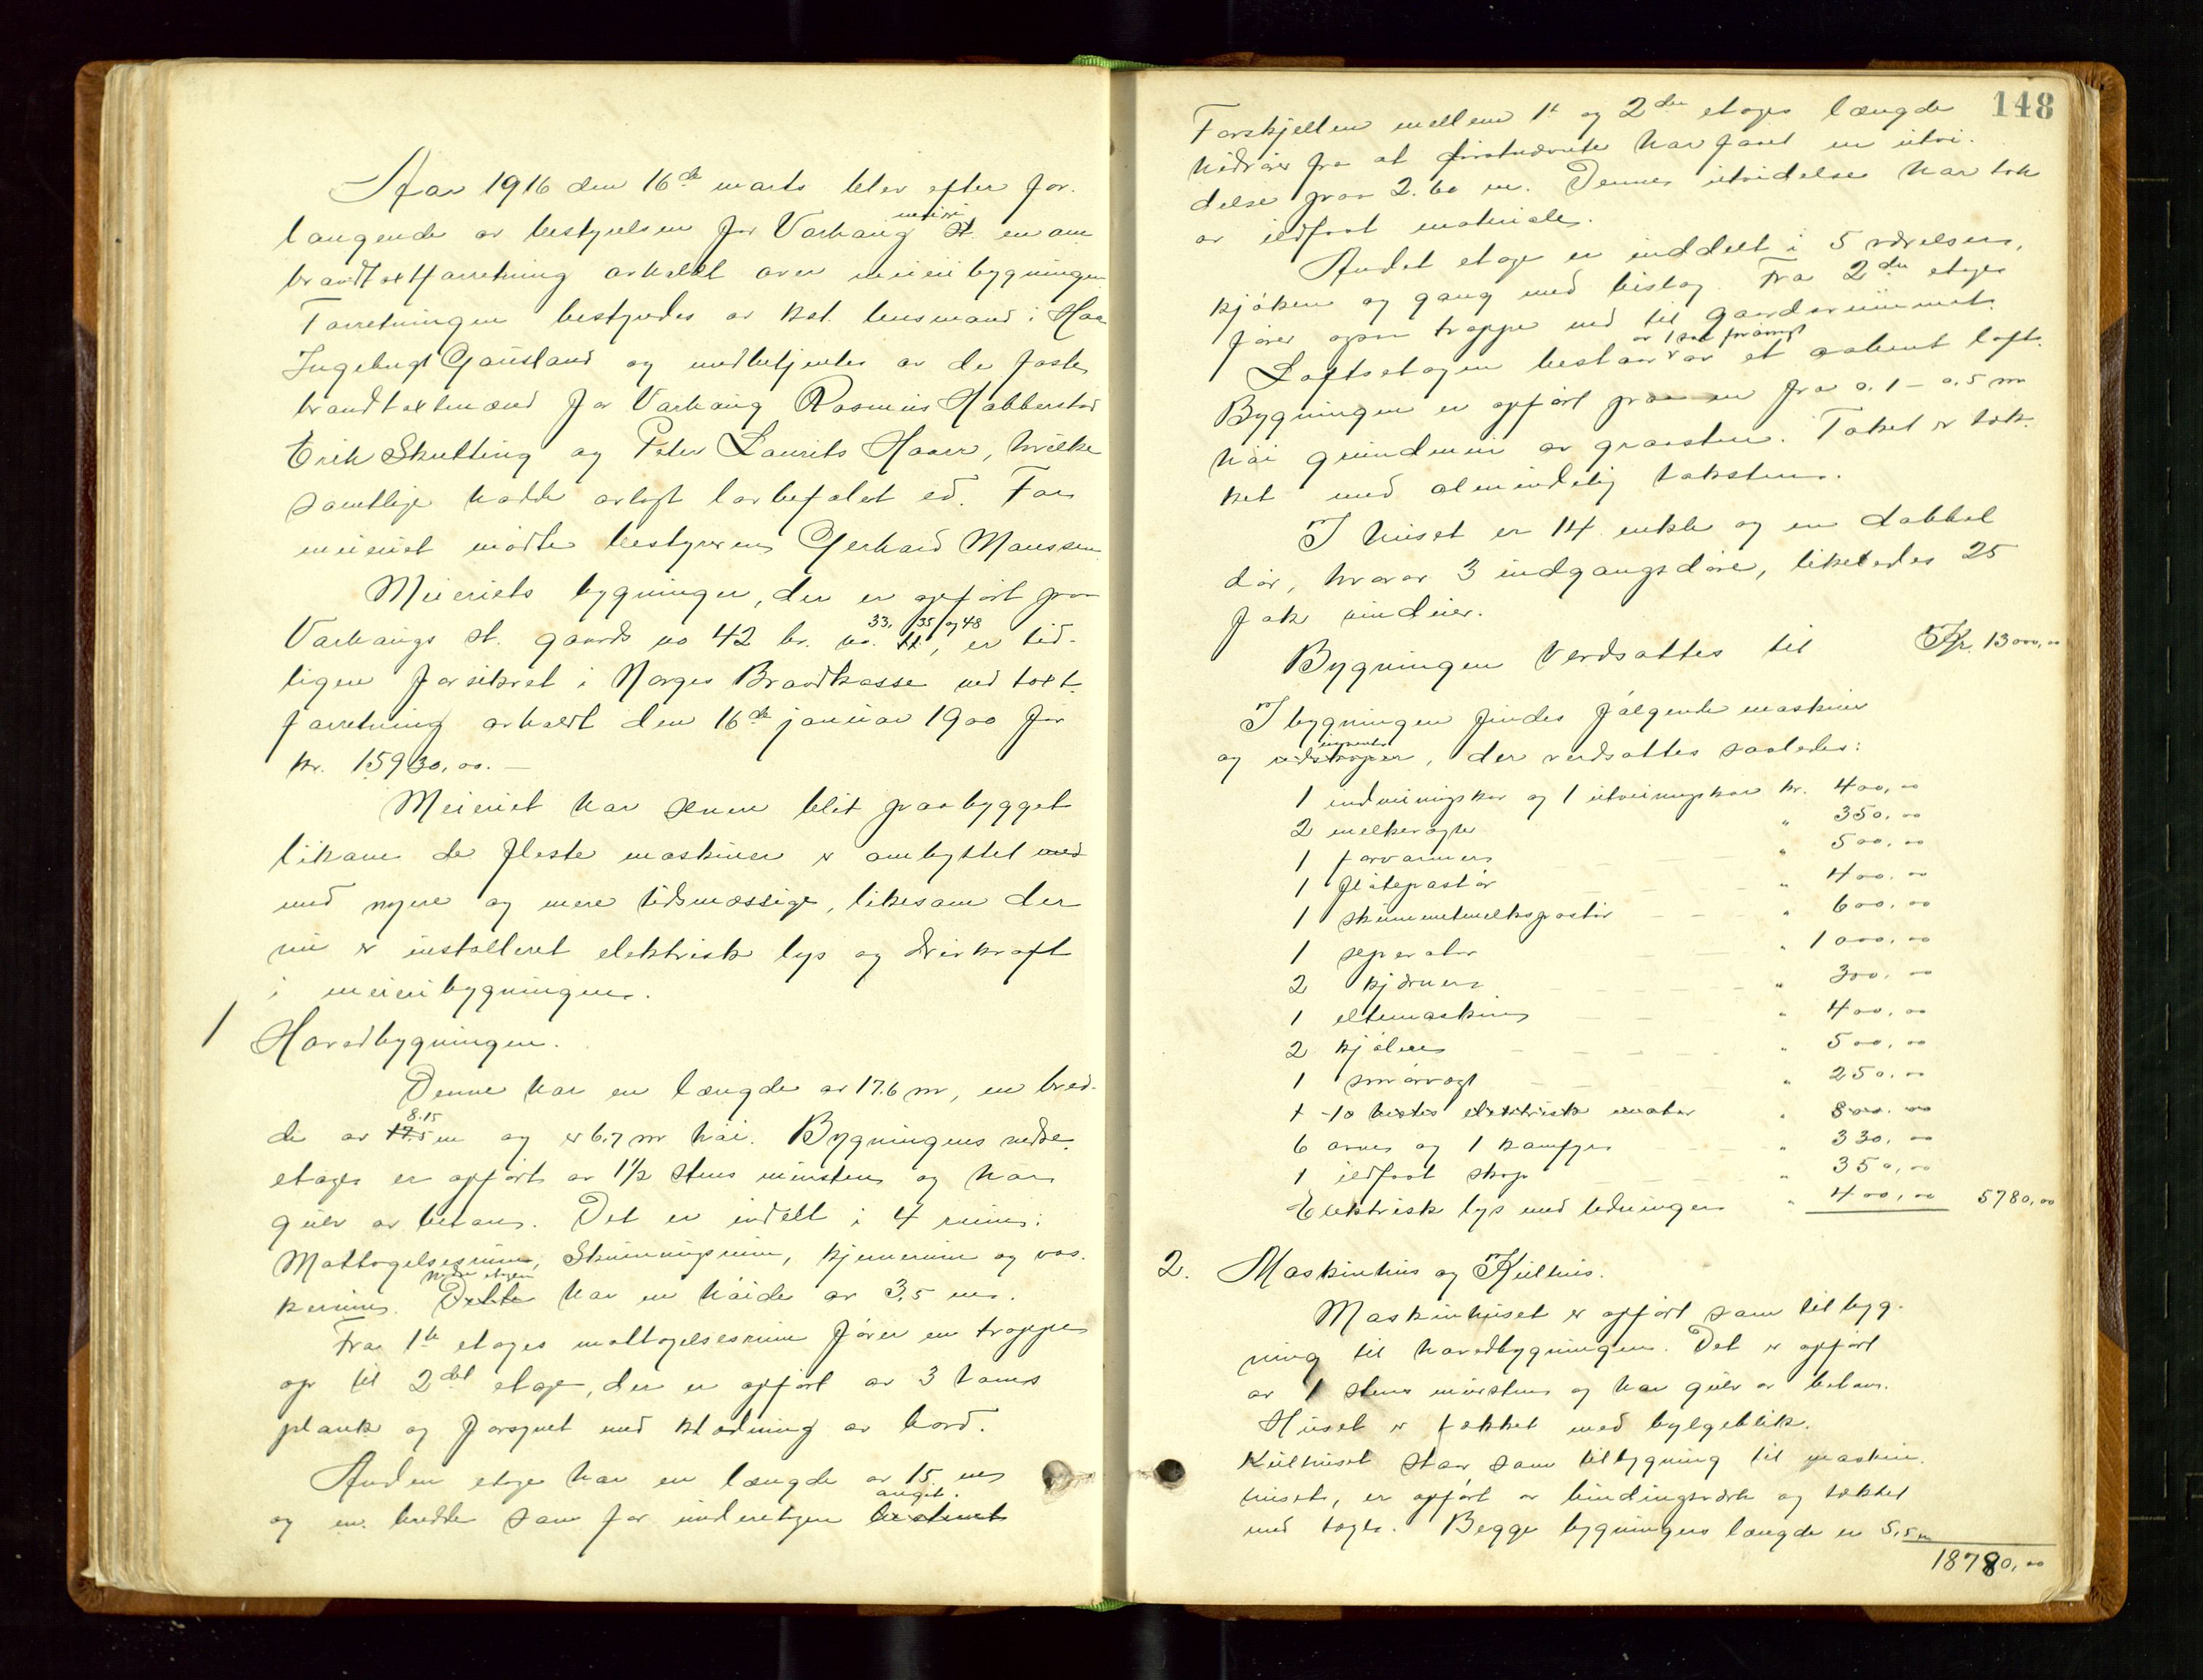 Aar 1916 den 16de marts blev efter for-
langende av bestyrelsen for Varhaug meieri st. en om-
brandtaxtforretning avholdt over meieribygningen
Forretningen bestyredes av kst. lensmand i Haa
Ingebrigt Gausland og medbetjentes av de faste
brandtaxtmænd for Varhaug Rasmus Habberstad
Erik Skutling og Peter Laurits Haaer, hvilke
samtlige hadde avlagt lovbefalet ed. For
meieriet mødte bestyreren Gerhard Maussen
Meieriets bygninger, der er opført paa
Varhaugs st. gaards no 42 br. no. 33, 35 og 48, er tid-
ligere forsikret i Norges Brandkasse ved taxt-
forretning avholdt den 16de januar 1900 for
kr. 15930,00.-
Meieriet har senere blit paabygget
likesom de fleste maskiner er ombyttet med
med nyere og mere tidsmæssige, likesom der
nu er installeret elektrisk lys og drivkraft
i meieribygningen.
1 Hovedbygningen.
Denne har en længde av 17.6 m, en bred-
de av 17.5 8.15 m og er 6.7 m høi. Bygningens nedre
etage er opført av 1½ stens mursten og har
gulv av beton. Det er indelt i 4 rum:
Mottagelsesrum, Skumningsrum, kjernerum og vas-
kerum. Dette nedre etagen har en høide av 3,5 m.
Fra 1ste etages mottagelsesrum fører en trappe
op til 2det etage, der er opført av 3 toms
plank og forsynet med klædning av bord.
Anden etage har en længde av 15 m
og en bredde som for underetagen bestemt angit.
148
Forskjellen mellem 1st og 2den etages længde
hidrører fra at førstnævnte har faaet en utvi-
delse paa 2.60 m. Denne utvidelse har tak
av ildfast materiale.
Andet etage er inddelt i 5 værelser,
kjøken og gang med bislag. Fra 2den etage
fører ogsaa trappe ned til gaardsrummet.
Loftsetagen bestaar av 1 rum forøvrigt av et aabent loft.
Bygningen er opført paa en fra 0.1 - 0.5 m
høi grundmur av graasten. Taket er tæk-
ket med almindelig taksten.
I huset er 14 enkle og en dobbel
dør, hvorav 3 indgangsdøre, likeledes 25
fak vinduer.
Bygningen verdsattes til Kr. 13000,00
I bygningen findes følgende maskiner
og redskaper, der verdsattes saaledes:
1 indveiningskar og 1 utveiningskar kr. 400,00
2 melkevægter " 350,00
1 forvarmer " 500,00
1 fløtepastør " 400,00
1 skummetmelkspastør " 600,00
1 seperator " 1000,00
2 kjærner " 300,00
1 eltemaskin " 400,00
2 kjølere " 500,00
1 smørvægt " 250,00
1 10 hestes elektrisk motor " 800,00
6 ovner og 1 komfyr " 330,00
1 ildfast skap " 350,00
Elektrisk lys med ledninger " 400,00 5780,00
2. Maskinhus og Kulhus.
Maskinhuset er opført som tilbyg-
ning til hovedbygningen. Det er opført
av 1 stens mursten og har gulv av beton.
Huset er tækket med bylgeblik.
Kulhuset staar som tilbygning til maskin-
huset, er opført av bindingsverk og tækket
med tagst. Begge bygningers længde er 5,5 m
18780,00